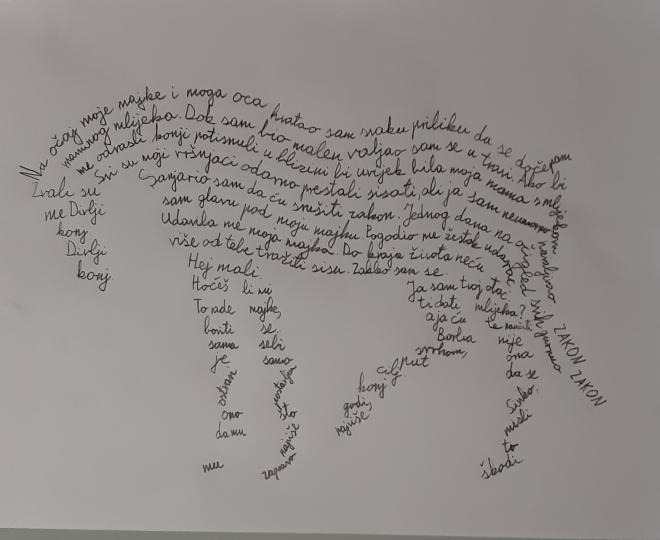 Na očaj moje majke i moga oca hvatao sam svaku priliku da se dočepam
mamnog mlijeka. Dok sam bio malen valjao sam se u travi. Ako bi
me odrasli konji potisnuli u blizini bi uvijek bila moja mama s mlijekom
Svi su moji vršnjaci odavno prestali sisati, ali ja sam
Sanjario sam da ću srušiti zakon. Jednog dana na očigled svih gurnuo
sam glavu pod moju majku. Pogodio me žestok udarac
Udavila me moja majka. Do kraja života neću
više od tebe tražiti sisu. Zakleo sam se.
Zvali su
me Divlji
konj.
Divlji
konj
Hej mali.
Hoćeš li mi
To rade majke,
boriti se.
sama sebi
je samo
ostavi
ono što
damu najviše
mu zapravo
Ja sam tvoj otac
ti dati mlijeka?
a ja ću te naučiti
Borba nije
svrhom, ona
put da se
cilj
konj
godi,
najviše
Sinko,
misli
to
škodi
ZAKON ZAKON